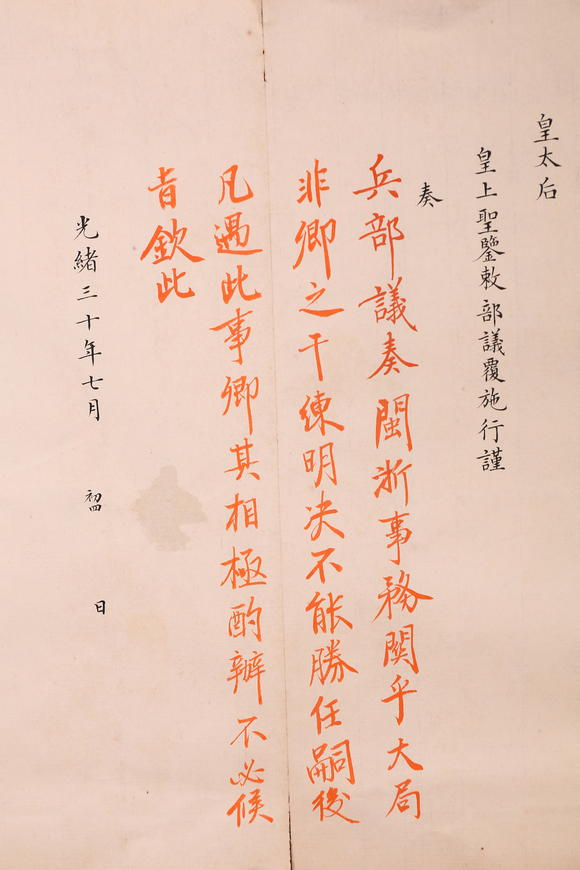 皇太后
皇上聖鑒敕部議覆施行謹
奏
兵部議奏閩浙事務関乎大局
非卿之干練明决不能勝任嗣後
凡遇此事卿其相極酌辦不必候
旨欽此
光緒三十年七月 初四 日